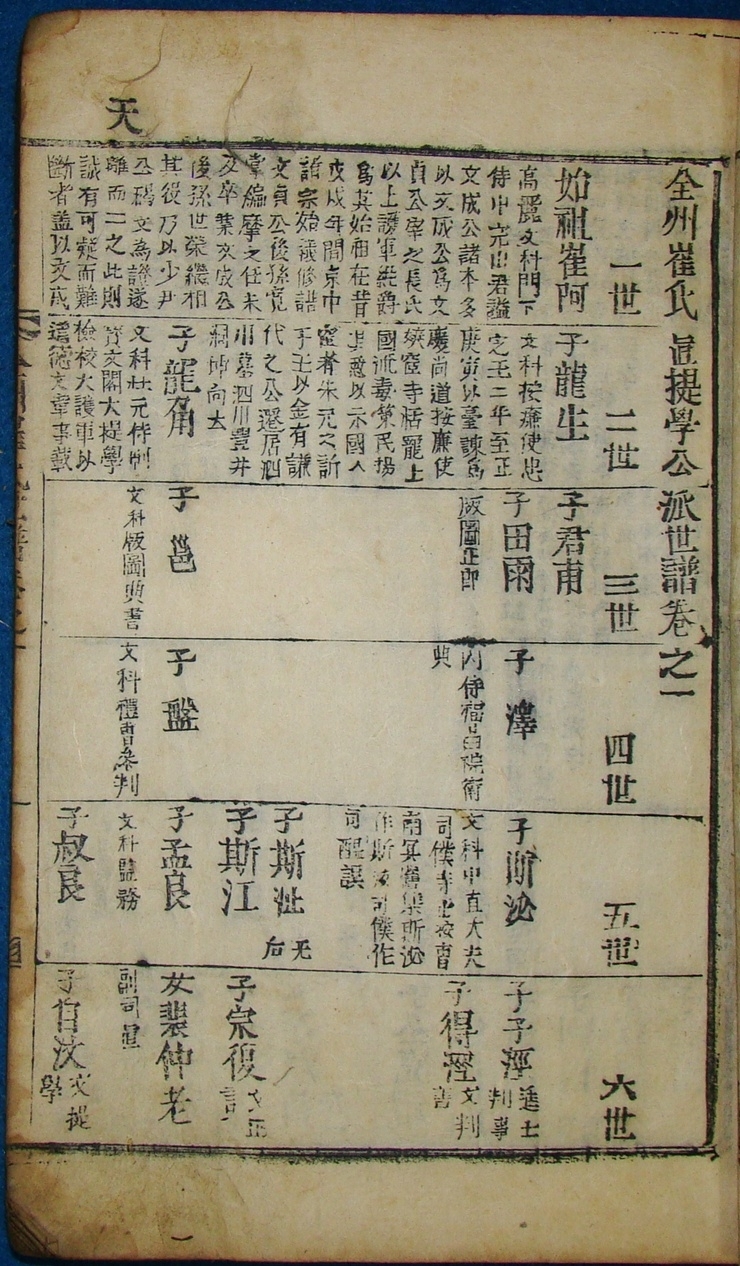 天
全州崔氏直提學公派世譜卷之一
一世
二世
三世
四世
五世
六世
始祖崔阿
高麗文科門下
侍中完山君謚
文成公諸本多
以文成公爲文
貞公宰之長氏
以上護軍純爵
爲其始祖在昔
戊戌年間京中
諸宗始議修譜
文貞公後孫寬
掌編摩之任未
及卒業文成公
後孫世榮繼相
其役乃以少尹
公碣文為證遂
離而二之此則
誠有可疑而難
斷者蓋以文成
子龍生
文科按廉使忠
定王二年至正
庚寅以臺諫爲
慶尚道按廉使
國
民
其惡以示國人
宦者朱元之訴
于王以金有謙
代之公還居泗
川墓泗川豊井
洞坤向
子龍角
文科壯元
寶文閣大提學
檢校大護軍以
道德文章事載
子君甫
子田雨
版圖正郎
子邕
文科版圖典書
子澤
內侍福昌院
典
子瀣
文科禮曹參判
子斯泌
文科中直大夫
司僕寺正按
南冥集斯泌
司僕作
司醒誤
子斯沚
无后
子斯江
子孟良
文科監務
子叔良
子子涇
進士
判事
子得涇
文判書
子宗復
文正
女裴仲老
副司直
子自汶
文提學